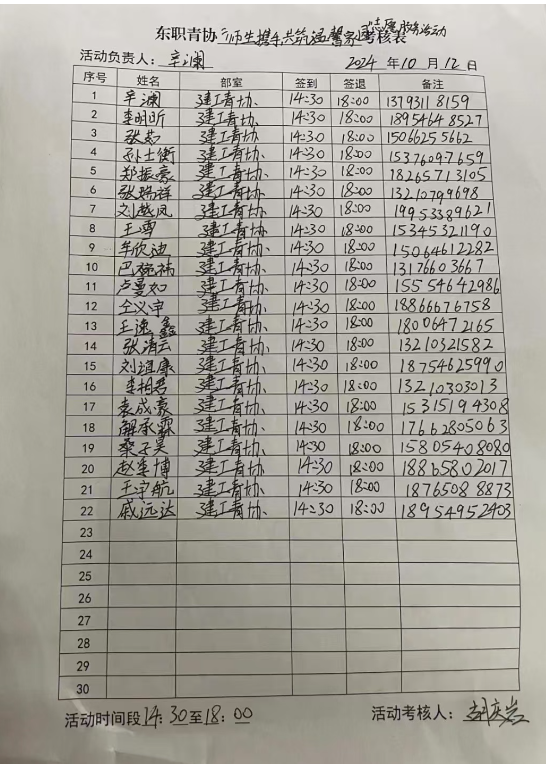 东职青协 师生携手共筑温馨家园志愿服务活动 考核表
活动负责人：辛澜 2024 年 10 月 12 日
序号 姓名 部室 签到 签退 备注
1 辛澜 建工青协 14:30 18:00 13793118159
2 李明昕 建工青协 14:30 18:00 18954648527
3 张茹 建工青协 14:30 18:00 15066255662
4 孙士衡 建工青协 14:30 18:00 15376097659
5 郑振豪 建工青协 14:30 18:00 18265713105
6 张瑞祥 建工青协 14:30 18:00 13210799698
7 刘越凤 建工青协 14:30 18:00 19953389621
8 王雪 建工青协 14:30 18:00 15345321190
9 牟欣迪 建工青协 14:30 18:00 15064612282
10 巴 建工青协 14:30 18:00 13176603667
11 卢曼如 建工青协 14:30 18:00 15554642986
12 仝义宇 建工青协 14:30 18:00 18866676758
13 王逸鑫 建工青协 14:30 18:00 18006472165
14 张清云 建工青协 14:30 18:00 13210321582
15 刘谊康 建工青协 14:30 18:00 18754625990
16 李相君 建工青协 14:30 18:00 13210303013
17 袁成豪 建工青协 14:30 18:00 15315194308
18 解承霖 建工青协 14:30 18:00 17662805063
19 桑子昊 建工青协 14:30 18:00 15805408080
20 赵奎博 建工青协 14:30 18:00 18865802017
21 王宇航 建工青协 14:30 18:00 18765088873
22 戚远达 建工青协 14:30 18:00 18954952403
23
24
25
26
27
28
29
30
活动时间段14：30至18：00 活动考核人：胡庆岩